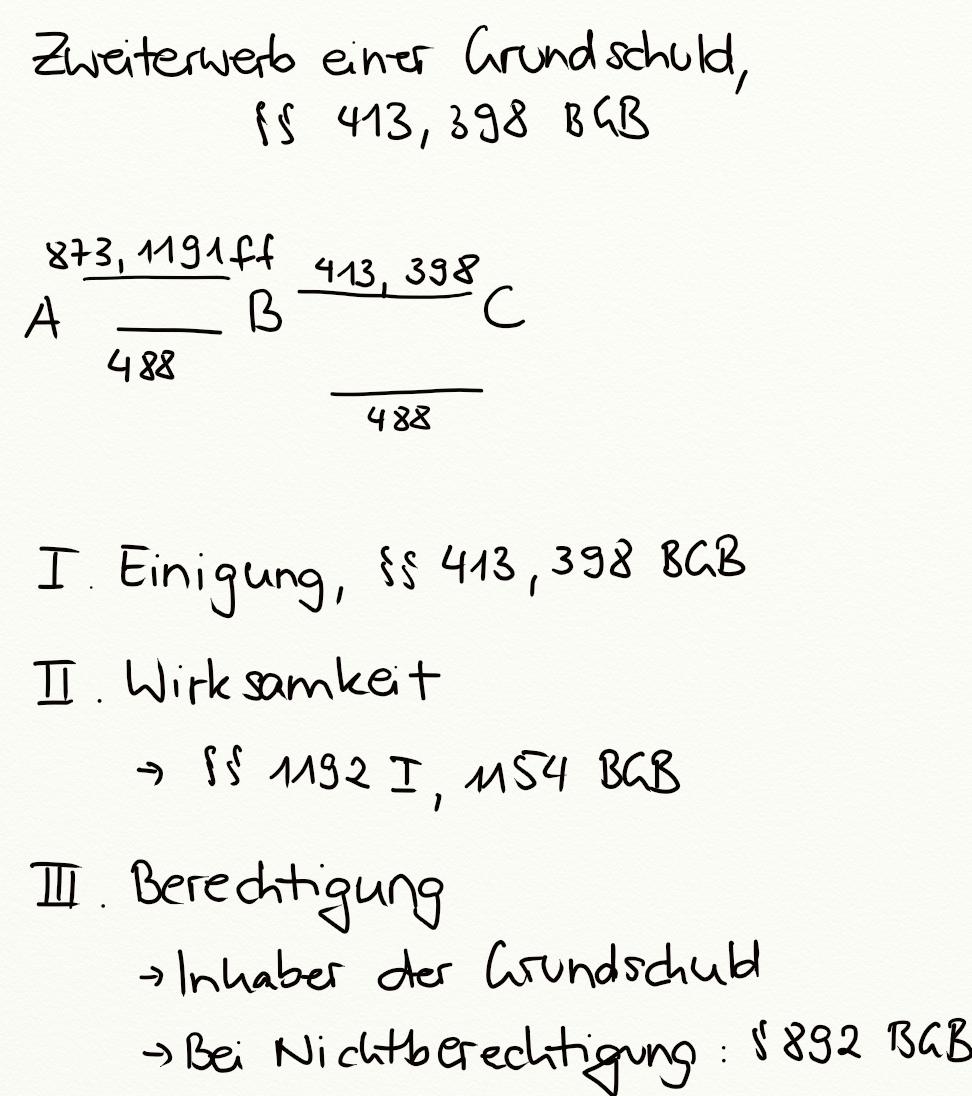 Zweiterwerb einer Grundschuld,
§§ 413, 398 BGB
873, 1191ff
413, 398
A B C
488
488
I. Einigung, §§ 413, 398 BGB
II. Wirksamkeit
→ §§ 1192 I, 1154 BGB
III. Berechtigung
→ Inhaber der Grundschuld
→ Bei Nichtberechtigung: § 892 BGB